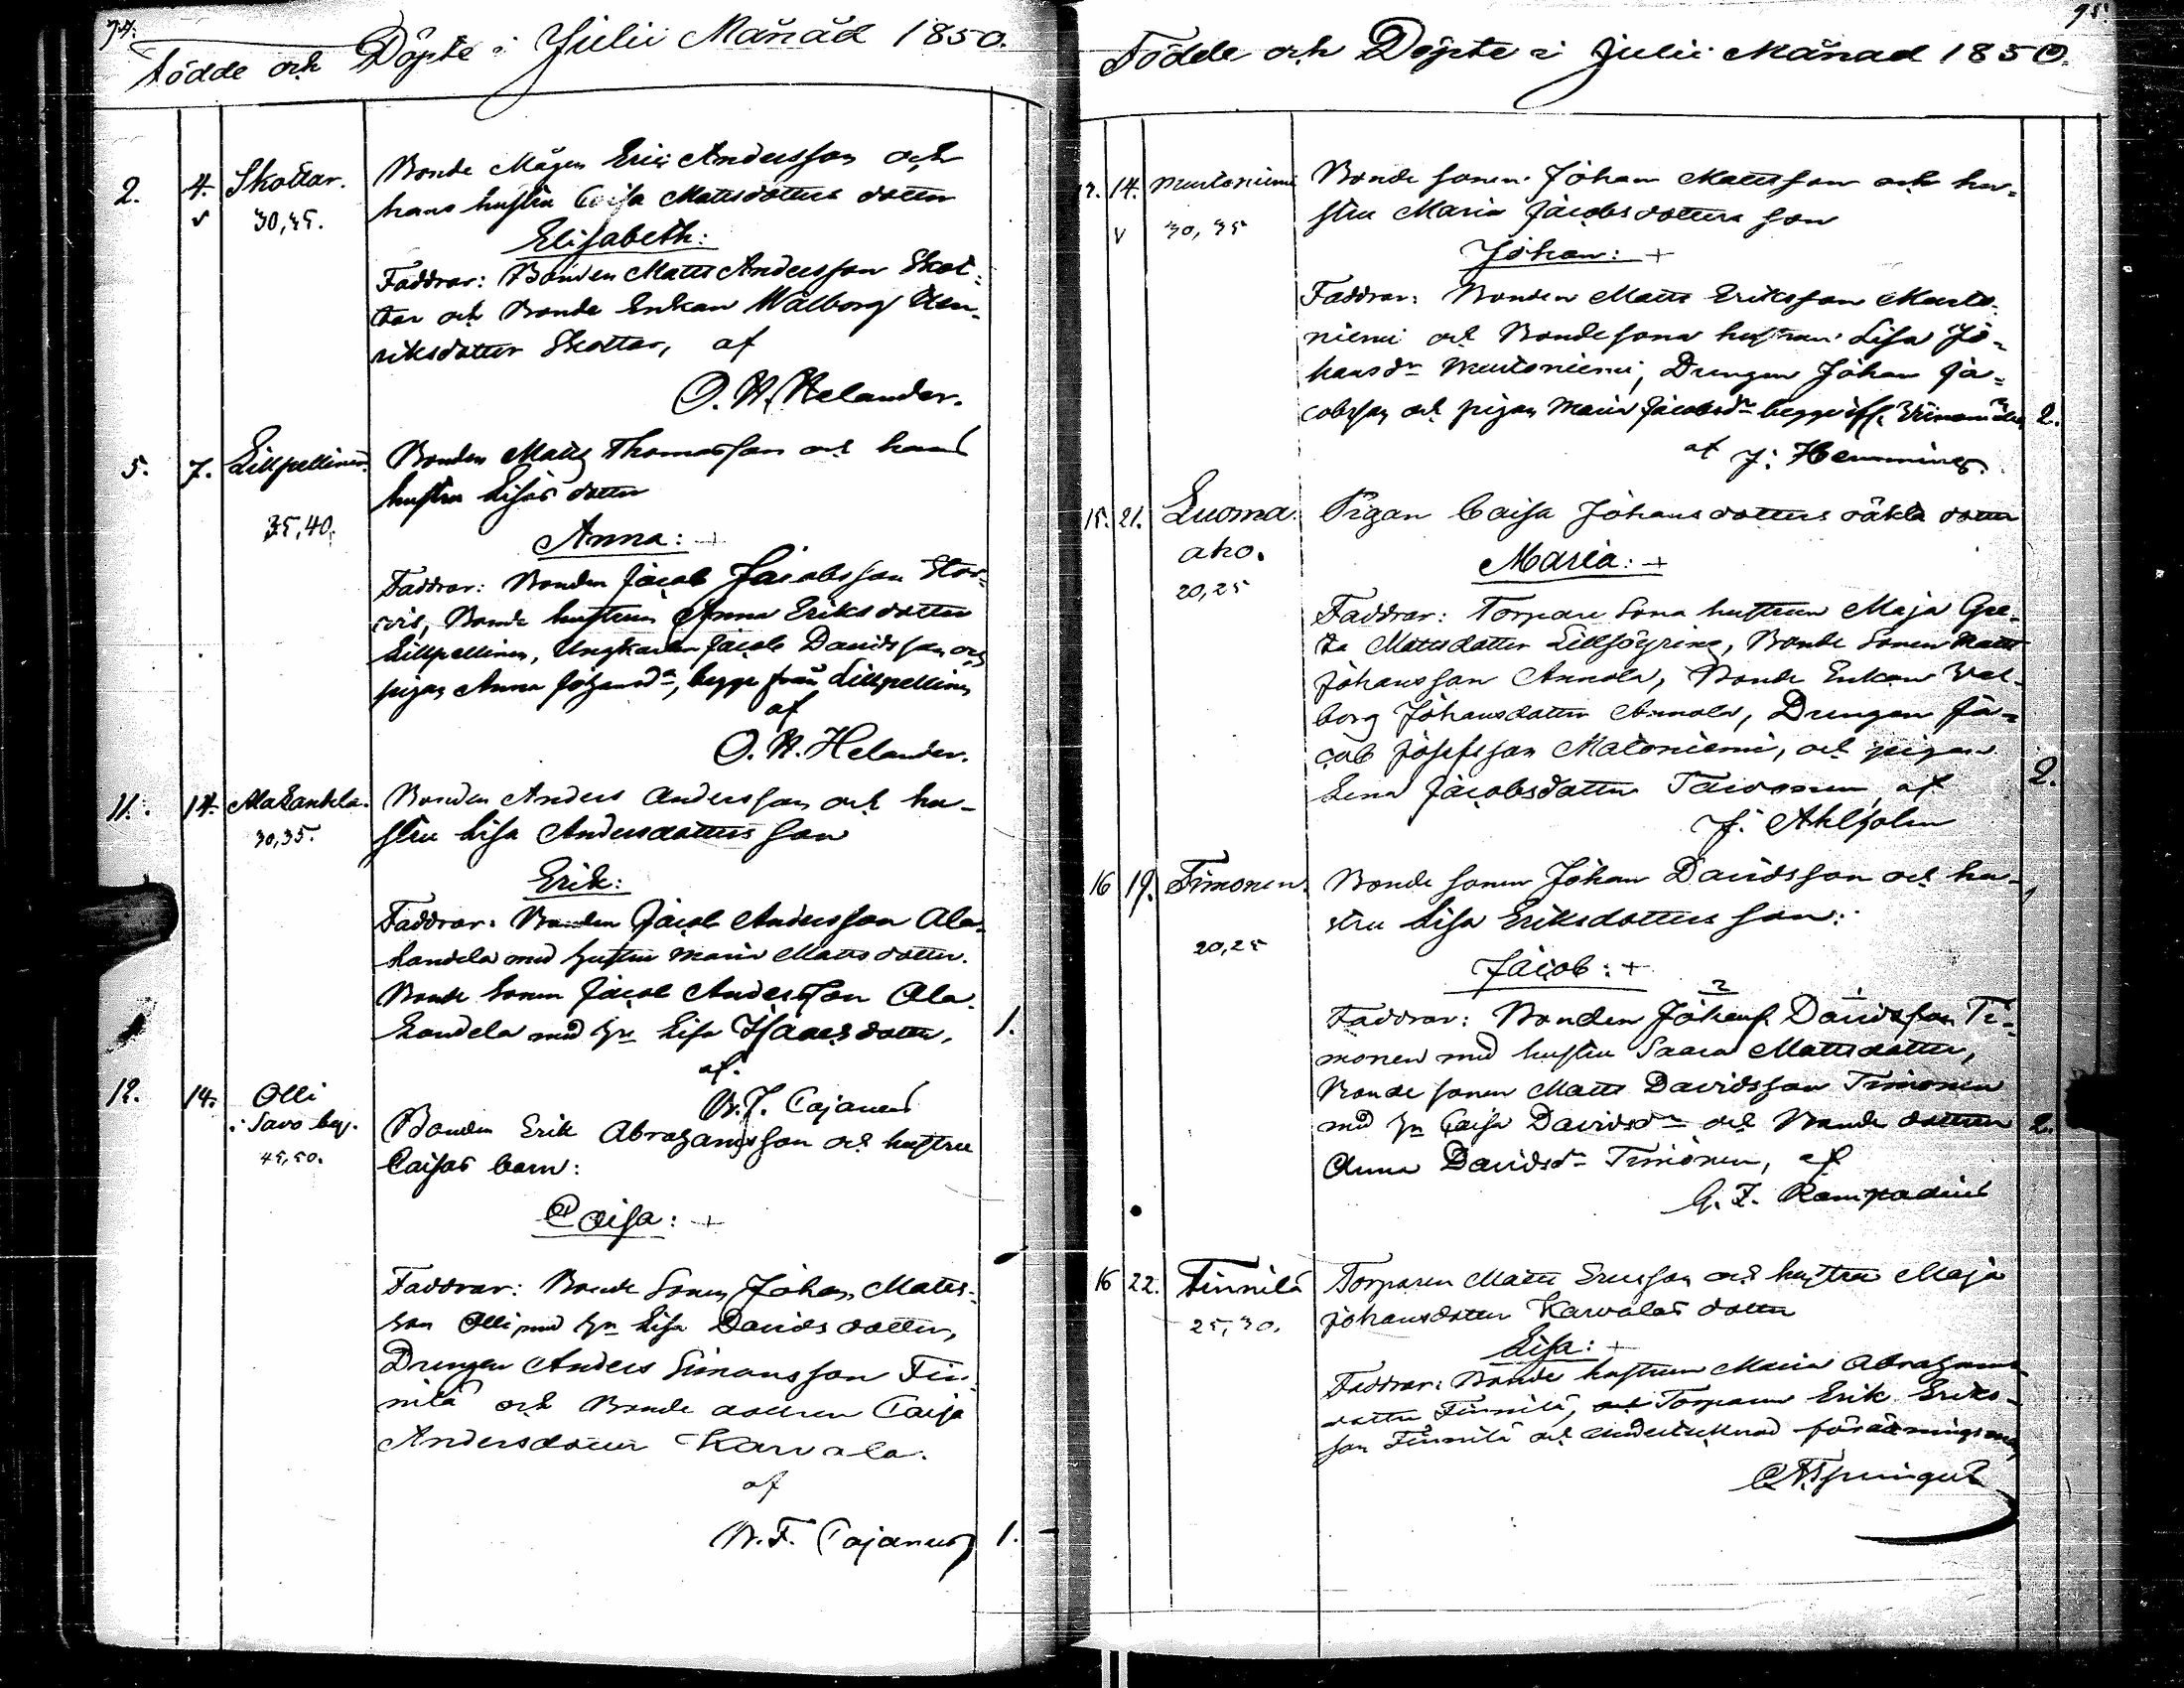 74.
Födde och Döpte i Julii Månad 1850.
2. 4. Skottar. Bonde Mågen Eric Andersson och
30,35. hans hustru Caisa Mattsdotters dotter
Elisabeth:
Faddrar: Bonden Matts Andersson Skot-
tar och Bonde Enkan Walborg Hen-
riksdotter Skottar, af
O. W. Helander.
5. 7. Lillpellinen. Bonden Matts Thomasson och hans
hustru Lisas dotter
35,40.
Anna: +
Faddrar: Bonden Jacob Jacobsson Stor-
vis, Bonde hustrun Anna Eriksdotter
Lillpellinen, Ungkarlen Jacob Davidsson och
pigan Anna Johansdr, begge från Lillpellinen
af
O. W. Helander.
11. 14. Alahandela. Bonden Anders Andersson och hu-
30,35. stru Lisa Andersdotters son
Erik:
Faddrar: Bonden Jacob Andersson Ala-
handela med hustru Maria Mattsdotter.
Bonde Sonen Jacob Andersson Ala-
handela med hu Lisa Isaacsdotter, 1.
af.
W. F. Cajanus
12. 14. Olli
i Savo by. Bonden Erik Abrahamsson och hustru
45,50. Caisas barn:
Caisa: +
Faddrar: Bonde Sonen Johan Matts-
son Olli med hu Lisa Davidsdotter,
Drengen Anders Simonsson Fin-
nilä och Bonde dottren Caisa
Andersdotter Karvala.
af
W. F. Cajanus 1.
75.
Födde och Döpte i Julii Månad 1850.
12. 14. Murtoniemi Bonde sonen Johan Mattsson och hu-
30,35 stru Maria Jacobsdotters son
Johan: +
Faddrar: Bonden Matts Eriksson Murto-
niemi och Bondesons hustrun Lisa Jo-
hansdr Murtoniemi, Drengen Johan Ja-
cobsson och pigan Maria Jacobsdr begge 2.
af J. Hemming.
15. 21. Luoma- Pigan Caisa Johansdotters oäkta dotter
aho.
Maria: +
20,25
Faddrar: Torpare Sona hustrun Maja Gre-
ta Mattsdotter Lillsöyring, Bonde Sonen Matts
Johansson Annola, Bonde Enkan Wal-
borg Johansdotter Annola, Drengen Ja-
cob Josefsson Matoniemi, och pigan
Lena Jacobsdotter af 2.
J. Ahlholm
16 19. Timonen. Bonde sonen Johan Davidsson och hu-
stru Lisa Eriksdotters son:
20,25
Jacob: +
2 1
Faddrar: Bonden Johans. Davidsson Ti-
monen med hustru Saara Mattsdotter,
Bonde sonen Matts Davidsson Timonen
med hu Caisa Davidsdr och Bonde dottren 2.
Anna Davidsdr Timonen, af
G. F. Rampadius
16 22. Finnilä Torparen Matts Ersson och hustru Maja
25,30. Johansdotter Karvalas dotter
Lisa: +
Faddrar: Bonde hustrun Maria Abrahams-
dotter Finnilä, och Torparen Erik Eriks-
son Finnilä och undertecknad